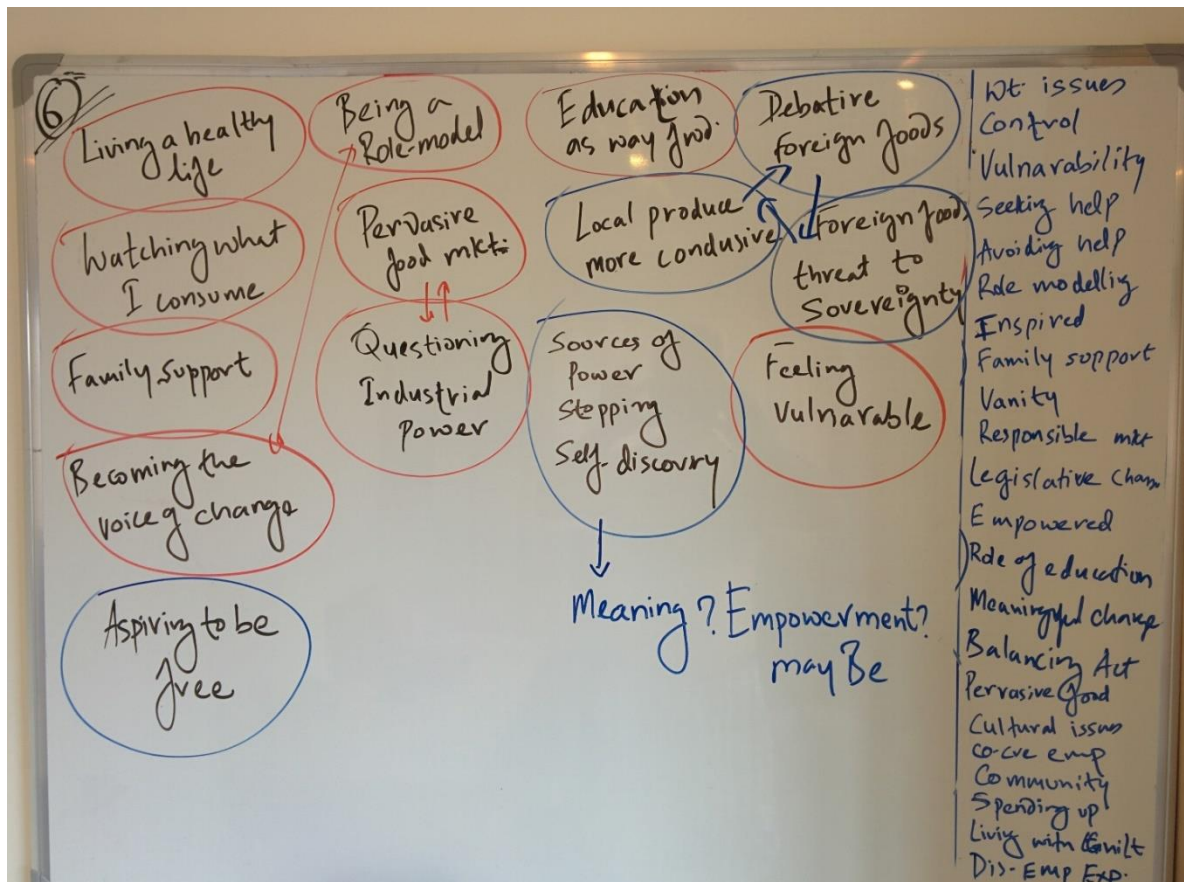 6
Living a healthy
life
Watching what
I consume
Family support
Becoming the
voice of change
Aspiring to be
free
Being a
Role-model
Pervasive
food mkt:
Questioning
Industrial
power
Education
as way fwd.
Local produce
more condusive
Sources of
Power
Stepping
Self-discovry
Meaning? Empowerment?
may Be
Debative
foreign foods
Foreign foods
threat to
Sovereignty
Feeling
Vulnarable
Wt. issues
Control
Vulnarability
Seeking help
Avoiding help
Role modellig
Inspired
Family support
Vanity
Responsible mkt
Legislative
Empowered
Role of education
Meaningful change
Balancing Act
Pervasive food
Cultural issues
emp
Community
Spending up
Livig with Guilt
Dis-Emp Exp.